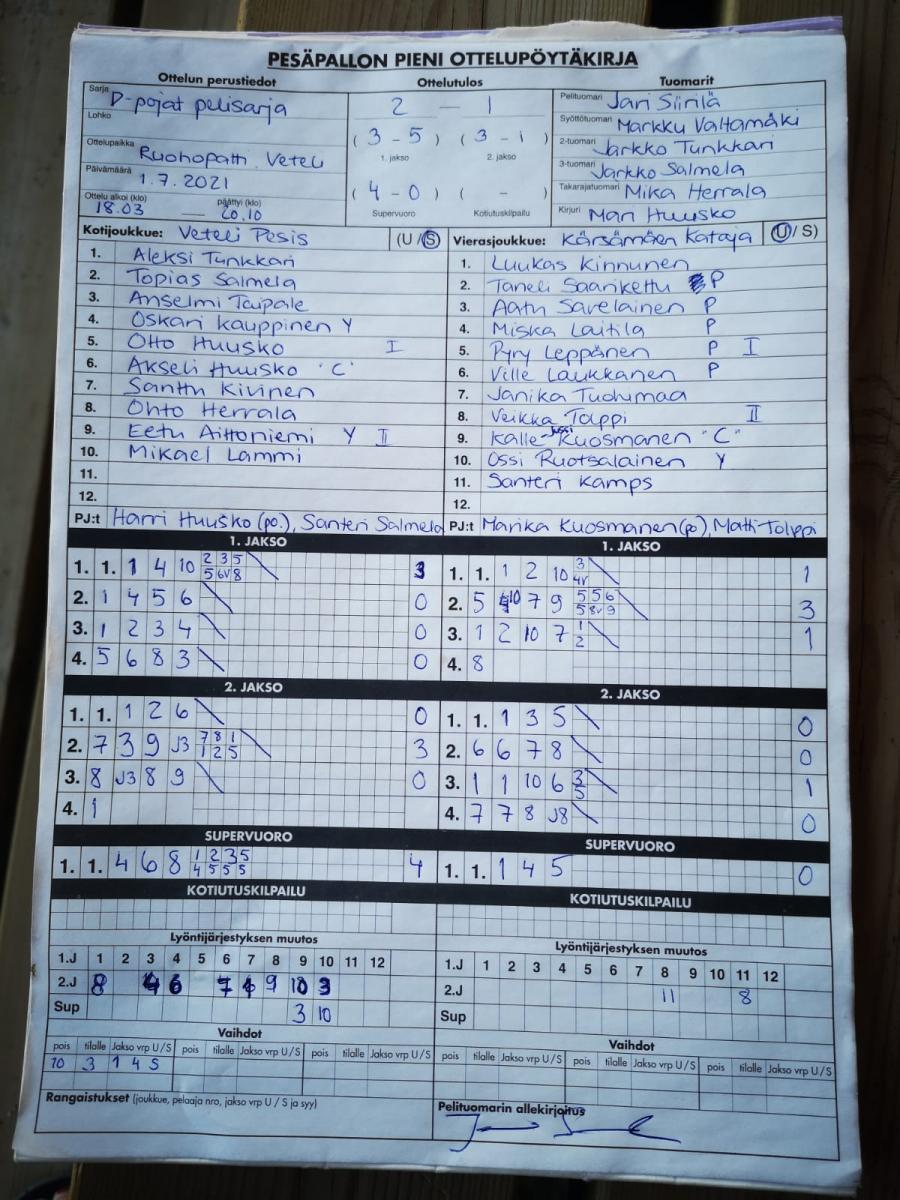 PESÄPALLON PIENI OTTELUPÖYTÄKIRJA
Ottelun perustiedot Ottelutulos Tuomarit
Sarja D-pojat pelisarja
Lohko
Ottelupaikka Ruohopatti Veteli
Päivämäärä 1.7.2021
Ottelu alkoi (klo) päättyi (klo)
18.03 — 20.10
2 — 1
(3 - 5) (3 - 1)
1. jakso 2. jakso
(4 - 0) ( - )
Supervuoro Kotiutuskilpailu
Pelituomari Jari Siirilä
Syöttötuomari Markku Valtamäki
2-tuomari Jarkko Tunkkari
3-tuomari Jarkko Salmela
Takarajatuomari Mika Herrala
Kirjuri Mari Huusko
Kotijoukkue: Veteli Pesis (U/S)
1. Aleksi Tunkkari
2. Topias Salmela
3. Anselmi Taipale
4. Oskari Kauppinen Y
5. Otto Huusko I
6. Akseli Huusko "C"
7. Santtu Kivinen
8. Ohto Herrala
9. Eetu Aittoniemi Y II
10. Mikael Lammi
11.
12.
PJ:t Harri Huusko (po.), Santeri Salmela
Vierasjoukkue: Kärsämäen Kataja (U/S)
1. Luukas Kinnunen
2. Taneli Saarikettu P
3. Aatu Savelainen P
4. Miska Laitila P
5. Pyry Leppänen P I
6. Ville Laukkanen P
7. Janika Tuohimaa
8. Veikka Tolppi II
9. Kalle-Jussi Kuosmanen "C"
10. Ossi Ruotsalainen Y
11. Santeri Kamps
12.
PJ:t Marika Kuosmanen (po), Matti Tolppi
1. JAKSO
1. 1. 1 4 10 2 3 5 3
5 6v 8
2. 1 4 5 6 0
3. 1 2 3 4 0
4. 5 6 8 3 0
1. JAKSO
1. 1. 1 2 10 3 1
4v
2. 5 10 7 9 5 5 6 3
5 8v 9
3. 1 2 10 7 1 1
2
4. 8
2. JAKSO
1. 1. 1 2 6 0
2. 7 3 9 J3 7 8 1 3
1 2 5
3. 8 J3 8 9 0
4. 1
2. JAKSO
1. 1. 1 3 5 0
2. 6 6 7 8 0
3. 1 1 10 6 3 1
5
4. 7 7 8 J8 0
SUPERVUORO
1. 1. 4 6 8 1 2 3 5 4
4 5 5 5
SUPERVUORO
1. 1. 1 4 5 0
KOTIUTUSKILPAILU
KOTIUTUSKILPAILU
Lyöntijärjestyksen muutos
1.J 1 2 3 4 5 6 7 8 9 10 11 12
2.J 8 6 7 9 10 3
Sup 3 10
Lyöntijärjestyksen muutos
1.J 1 2 3 4 5 6 7 8 9 10 11 12
2.J 11 8
Sup
Vaihdot
pois tilalle Jakso vrp U/S pois tilalle Jakso vrp U/S pois tilalle Jakso vrp U/S
10 3 1 4 S
Vaihdot
pois tilalle Jakso vrp U/S pois tilalle Jakso vrp U/S pois tilalle Jakso vrp U/S
Rangaistukset (joukkue, pelaaja nro, jakso vrp U/S ja syy)
Pelituomarin allekirjoitus